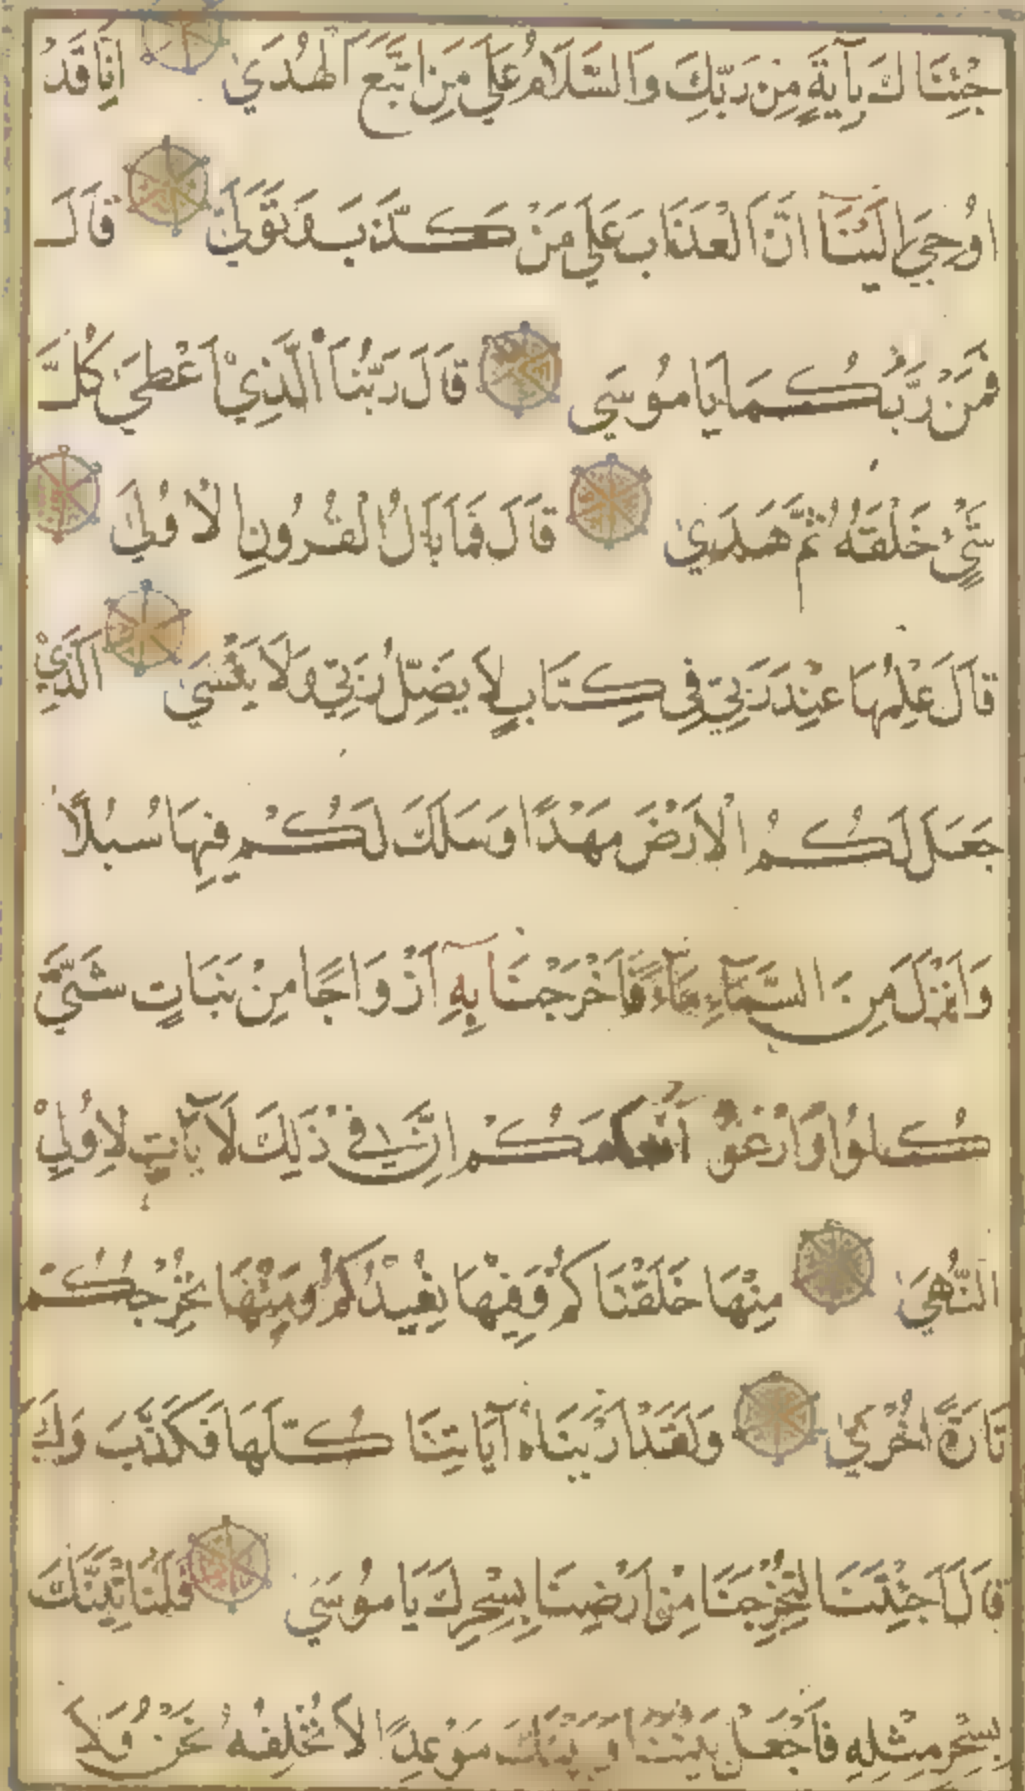 جِئْنَاكَ بِآيَةٍ مِنْ رَبِّكَ وَالسَّلَامُ عَلَى مَنِ اتَّبَعَ الْهُدَى اِنَّا قَدْ
اُوحِيَ اِلَيْنَآ اَنَّ الْعَذَابَ عَلَى مَنْ كَذَّبَ وَتَوَلَّى قَالَ
فَمَنْ رَبُّكُمَا يَا مُوسَى قَالَ رَبُّنَا الَّذِيْ اَعْطَى كُلَّ
شَيْءٍ خَلْقَهُ ثُمَّ هَدَى قَالَ فَمَا بَالُ الْقُرُونِ الْاُولَى
قَالَ عِلْمُهَا عِنْدَ رَبِّي فِي كِتَابٍ لَا يَضِلُّ رَبِّي وَلَا يَنْسَى اَلَّذِيْ
جَعَلَ لَكُمُ الْاَرْضَ مَهْدًا وَسَلَكَ لَكُمْ فِيهَا سُبُلًا
وَاَنْزَلَ مِنَ السَّمَآءِ مَآءً فَاَخْرَجْنَا بِهِ اَزْوَاجًا مِنْ نَبَاتٍ شَتَّى
كُلُوا وَارْعَوْا اَنْعَامَكُمْ اِنَّ فِي ذَلِكَ لَآيَاتٍ لِاُولِي
النُّهَى مِنْهَا خَلَقْنَاكُمْ وَفِيهَا نُعِيْدُكُمْ وَمِنْهَا نُخْرِجُكُمْ
تَارَةً اُخْرَى وَلَقَدْ اَرَيْنَاهُ آيَاتِنَا كُلَّهَا فَكَذَّبَ وَاَبَى
قَالَ اَجِئْتَنَا لِتُخْرِجَنَا مِنْ اَرْضِنَا بِسِحْرِكَ يَا مُوسَى فَلَنَاْتِيَنَّكَ
بِسِحْرٍ مِثْلِهِ فَاجْعَلْ بَيْنَنَا وَبَيْنَكَ مَوْعِدًا لَا نُخْلِفُهُ نَحْنُ وَلَا